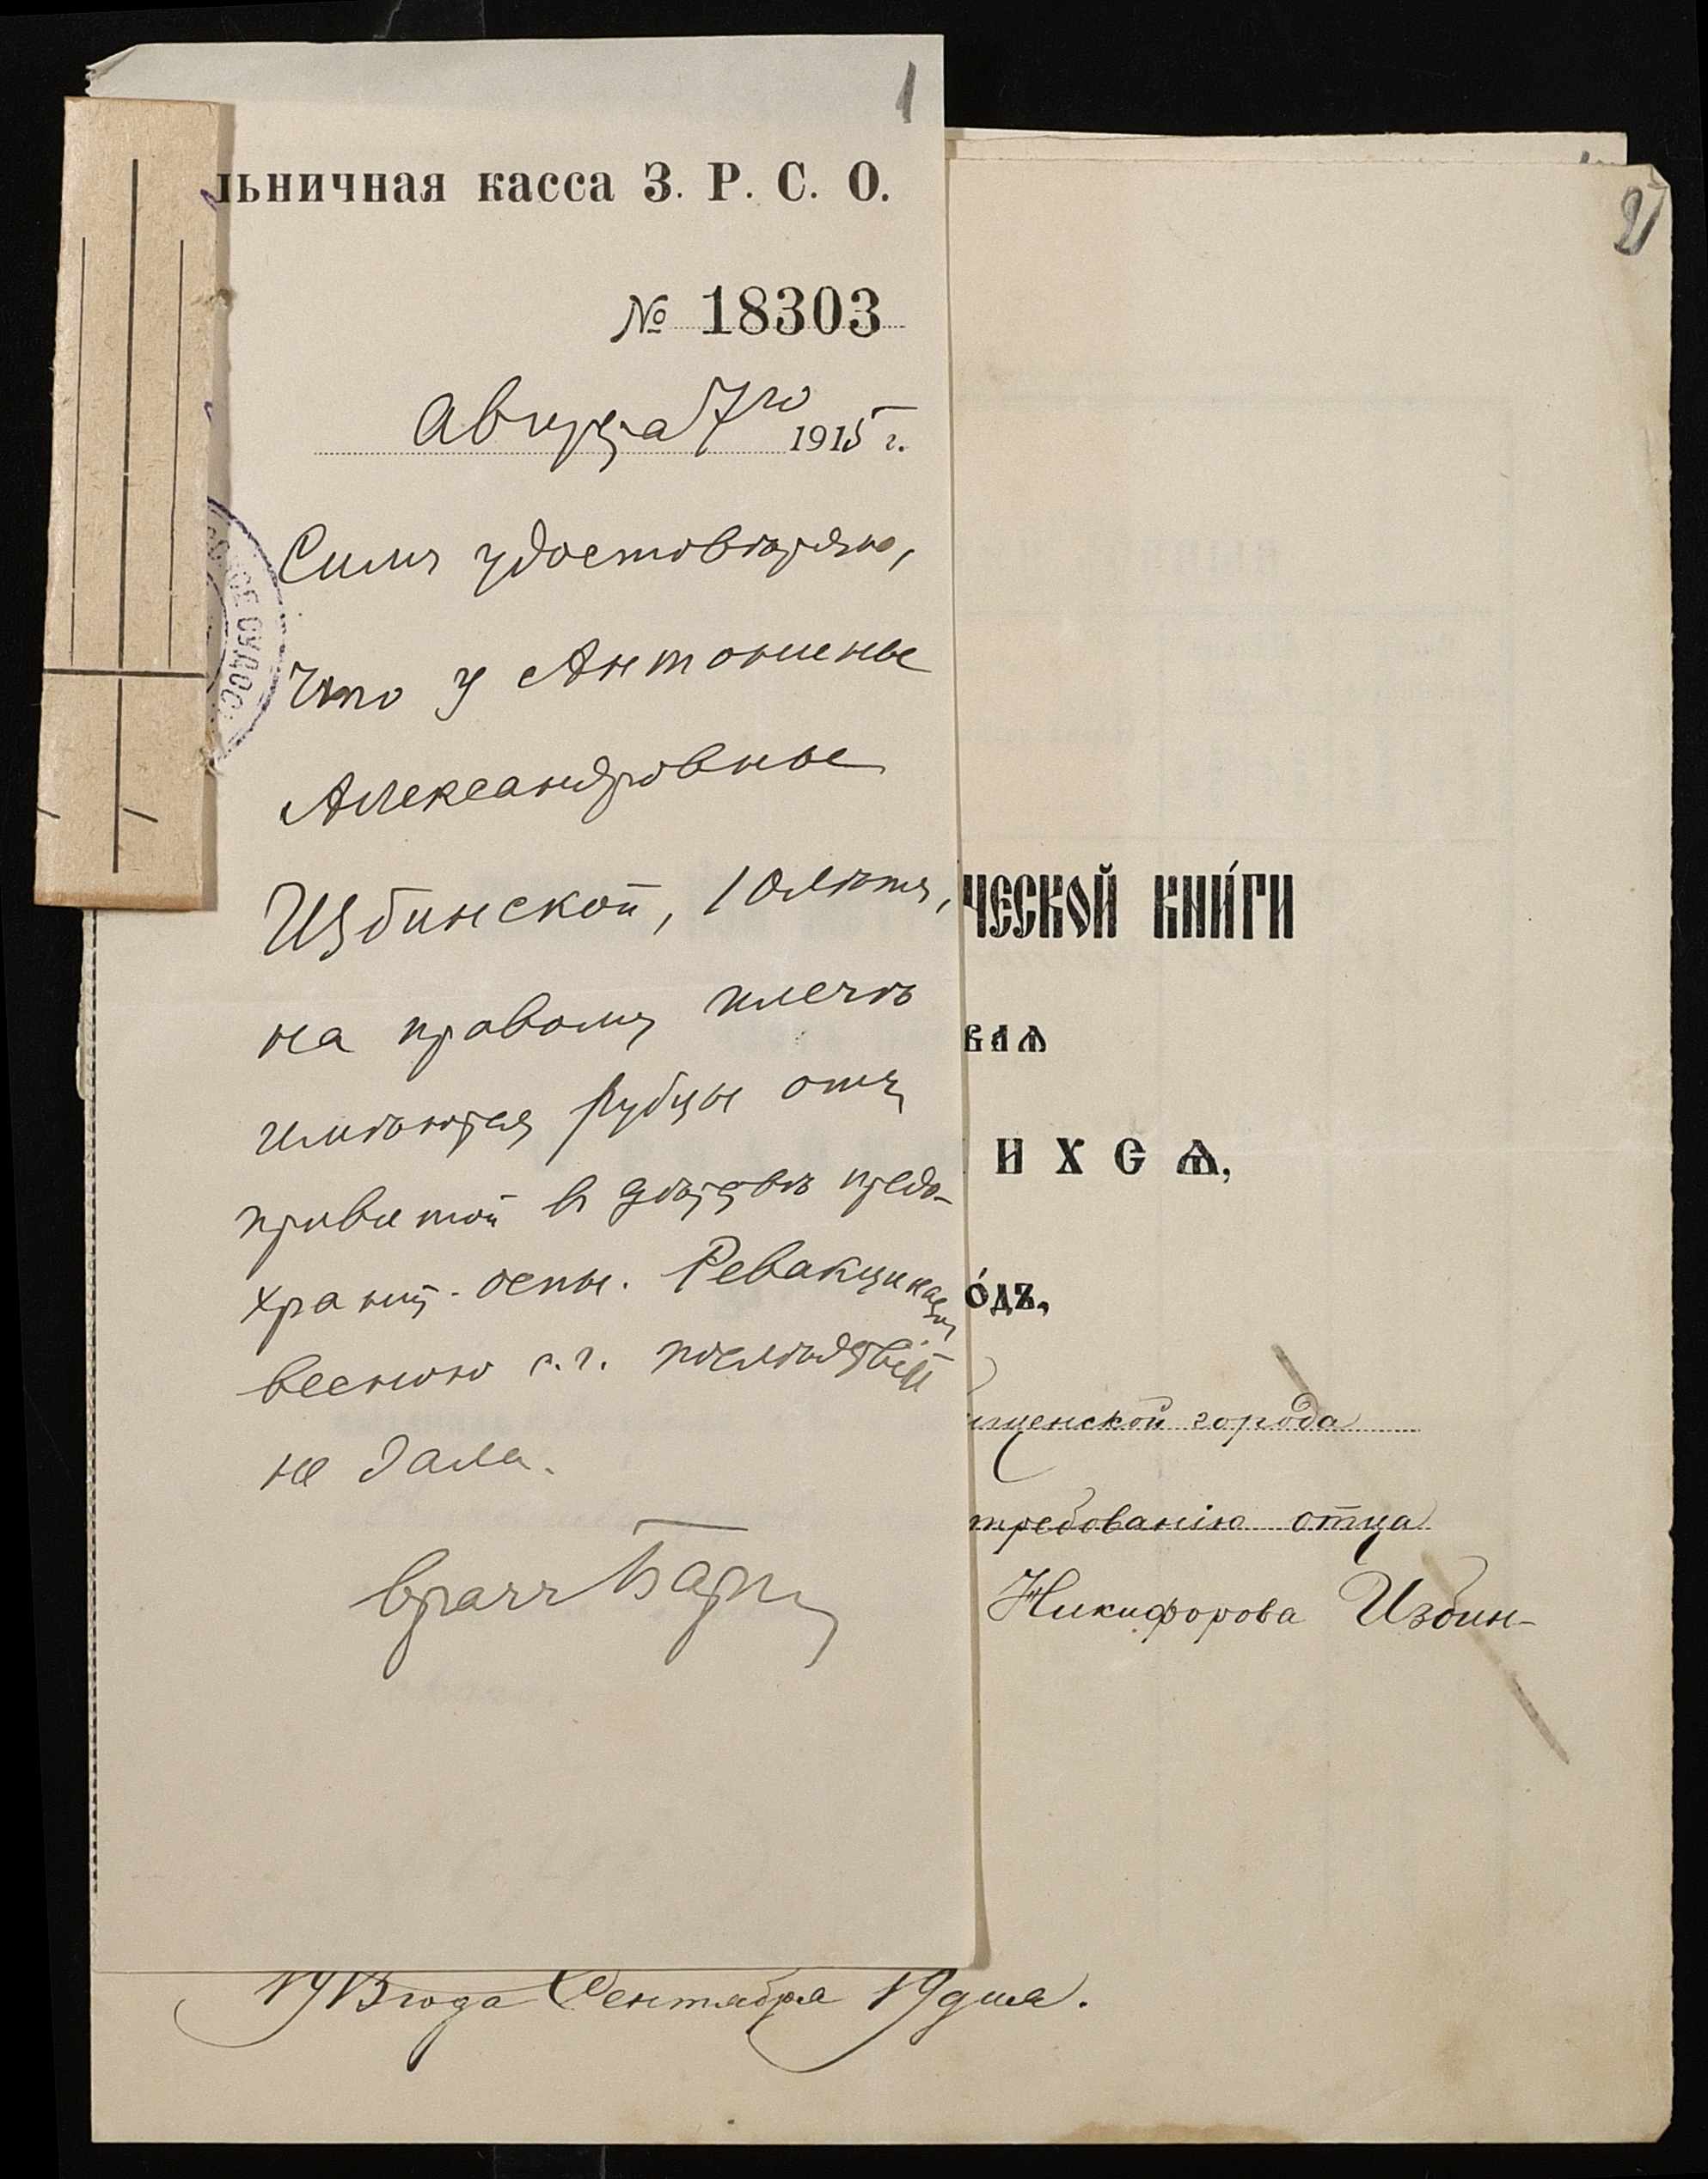 1
льничная касса З. Р. С. О.
№ 18303
Августа 7го 1915 г.
Симъ удостовѣряю,
что у Антонины
Александровны
Избинской, 10 лѣтъ,
на правомъ плечѣ
имѣются рубцы отъ
привитой въ дѣтствѣ предо-
хранит. оспы. Ревакцинація
весною с. г. послѣдствій
не дала.
Врачъ
2
ческой кни́ги
вая
ихся,
о́дъ,
ищенской города
требованію отца
Никифорова Избин-
1913 года Сентября 19 дня.